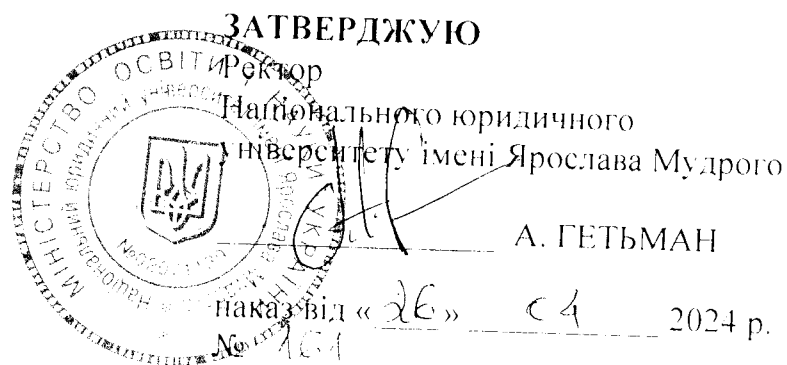 ЗАТВЕРДЖУЮ
Ректор
Національного юридичного
університету імені Ярослава Мудрого
А. ГЕТЬМАН
наказ від « 26 » 2024 р.
№ 161
МІНІСТЕРСТВО ОСВІТИ І НАУКИ УКРАЇНИ
Національний юридичний університет імені Ярослава Мудрого